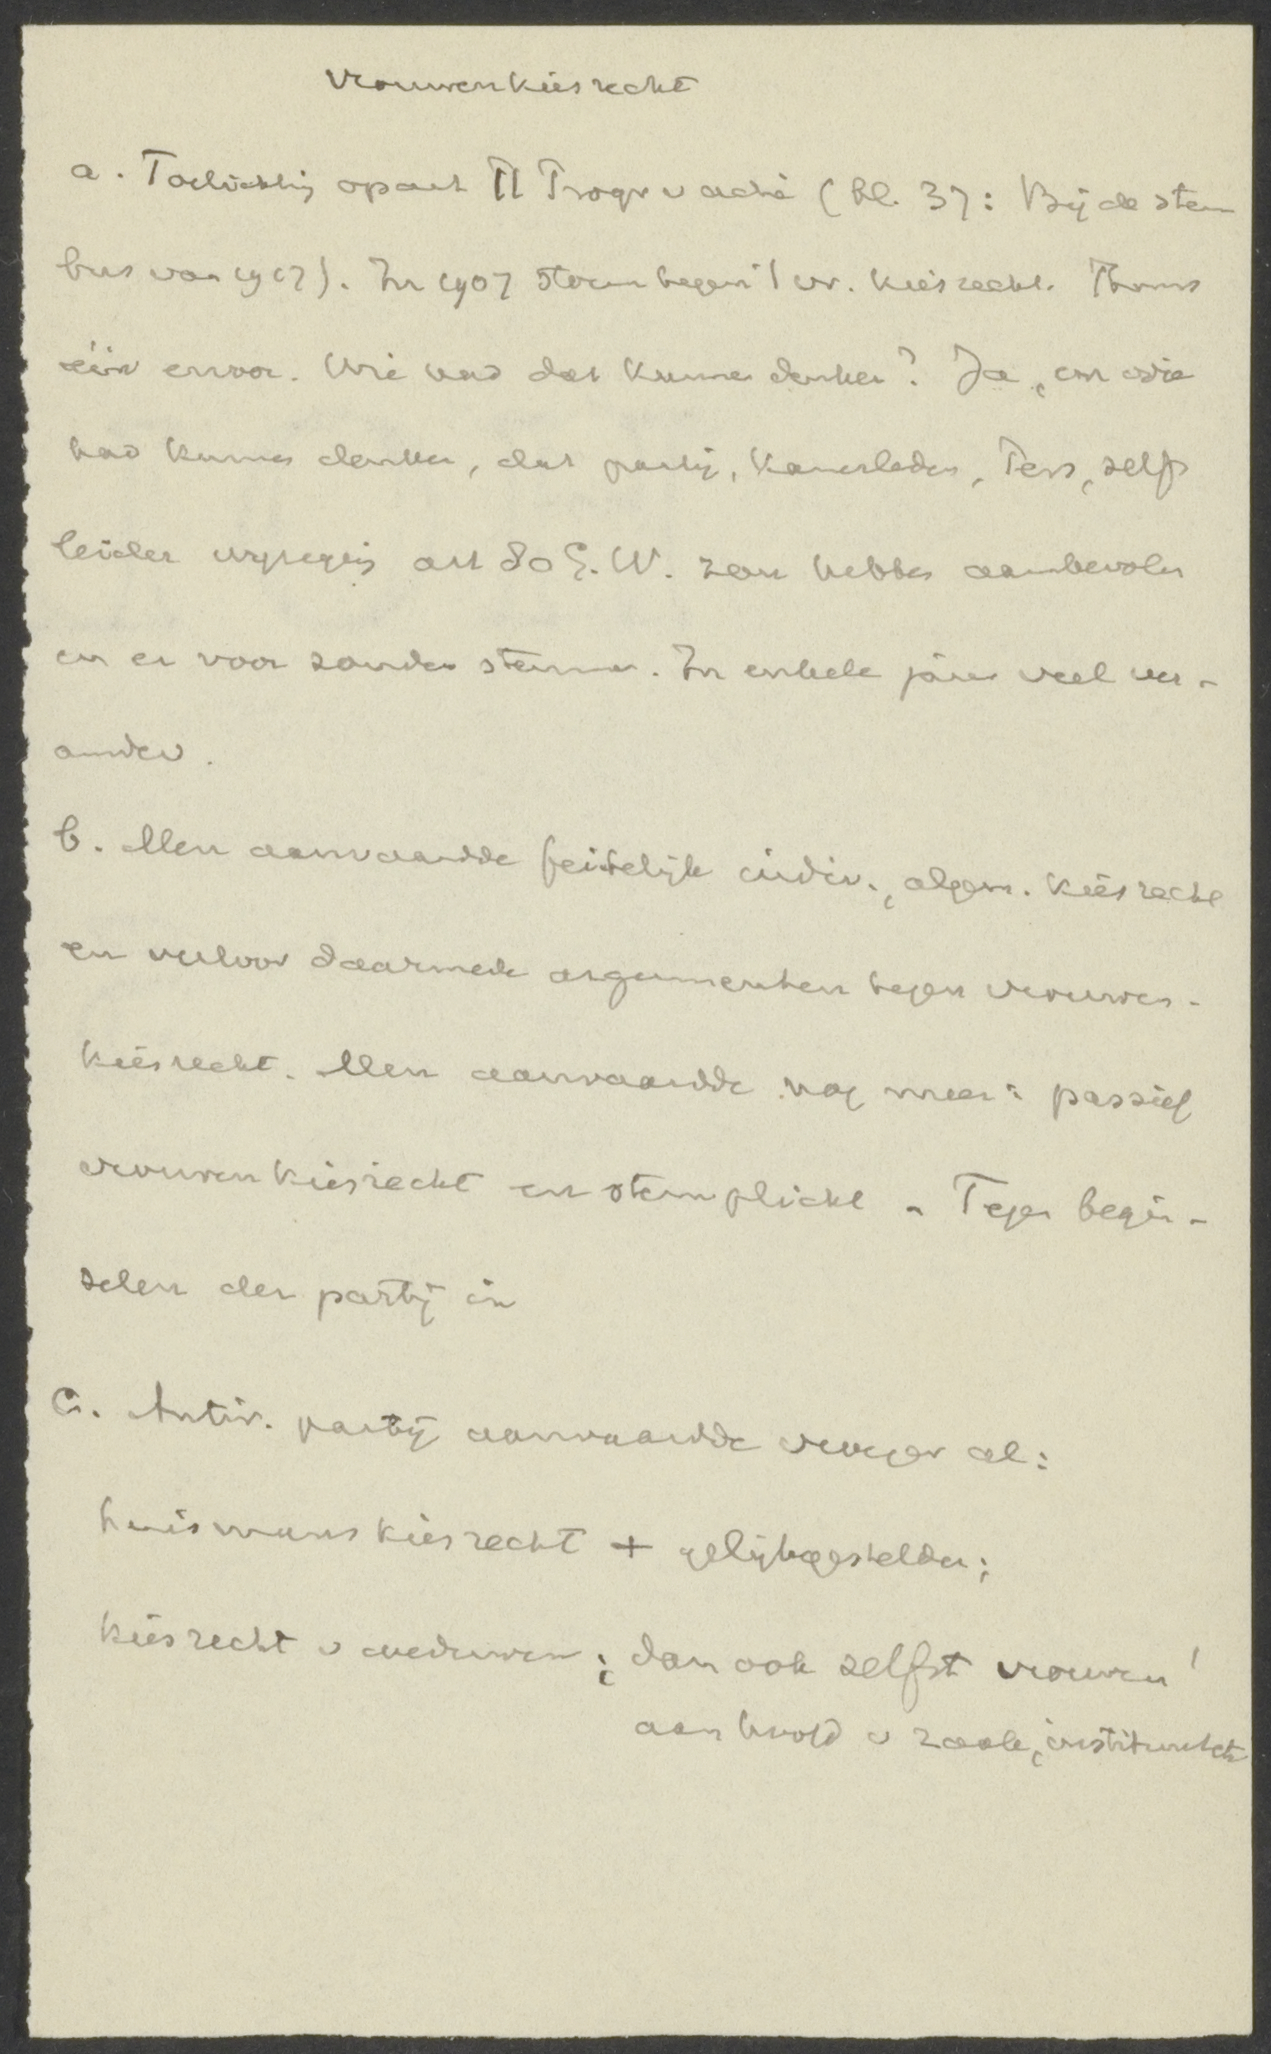 Vrouwenkiesrecht
a. Toelichting op art II Progr v actie (bl. 37: Bij de stem
bus van 1917). In 1907 stem tegen vr. kiesrecht. Thans
één ervoor. Wie had dat kunnen denken? Ja, en wie
had kunnen denken, dat partij, Kamerleden, Pers, zelfs
leider wijziging art 80 G.W. zou hebben aanbevolen
en er voor zouden stemmen. In enkele jaren veel ver-
anderd.
b. Men aanvaardde feitelijk indiv., algem. kiesrecht
en verloor daarmede argumenten tegen vrouwen-
kiesrecht. Men aanvaardde nog meer: passief
vrouwenkiesrecht en stemplicht - Tegen begin-
selen der partij in
c. Antir. partij aanvaardde vroeger al:
huismanskiesrecht + gelijkgestelden;
kiesrecht v weduwen; dan ook zelfst vrouwen!
aan hoofd v zaak,